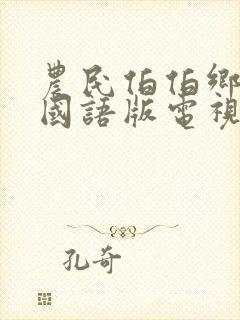 農民伯伯鄉
國語版電視
孔奇